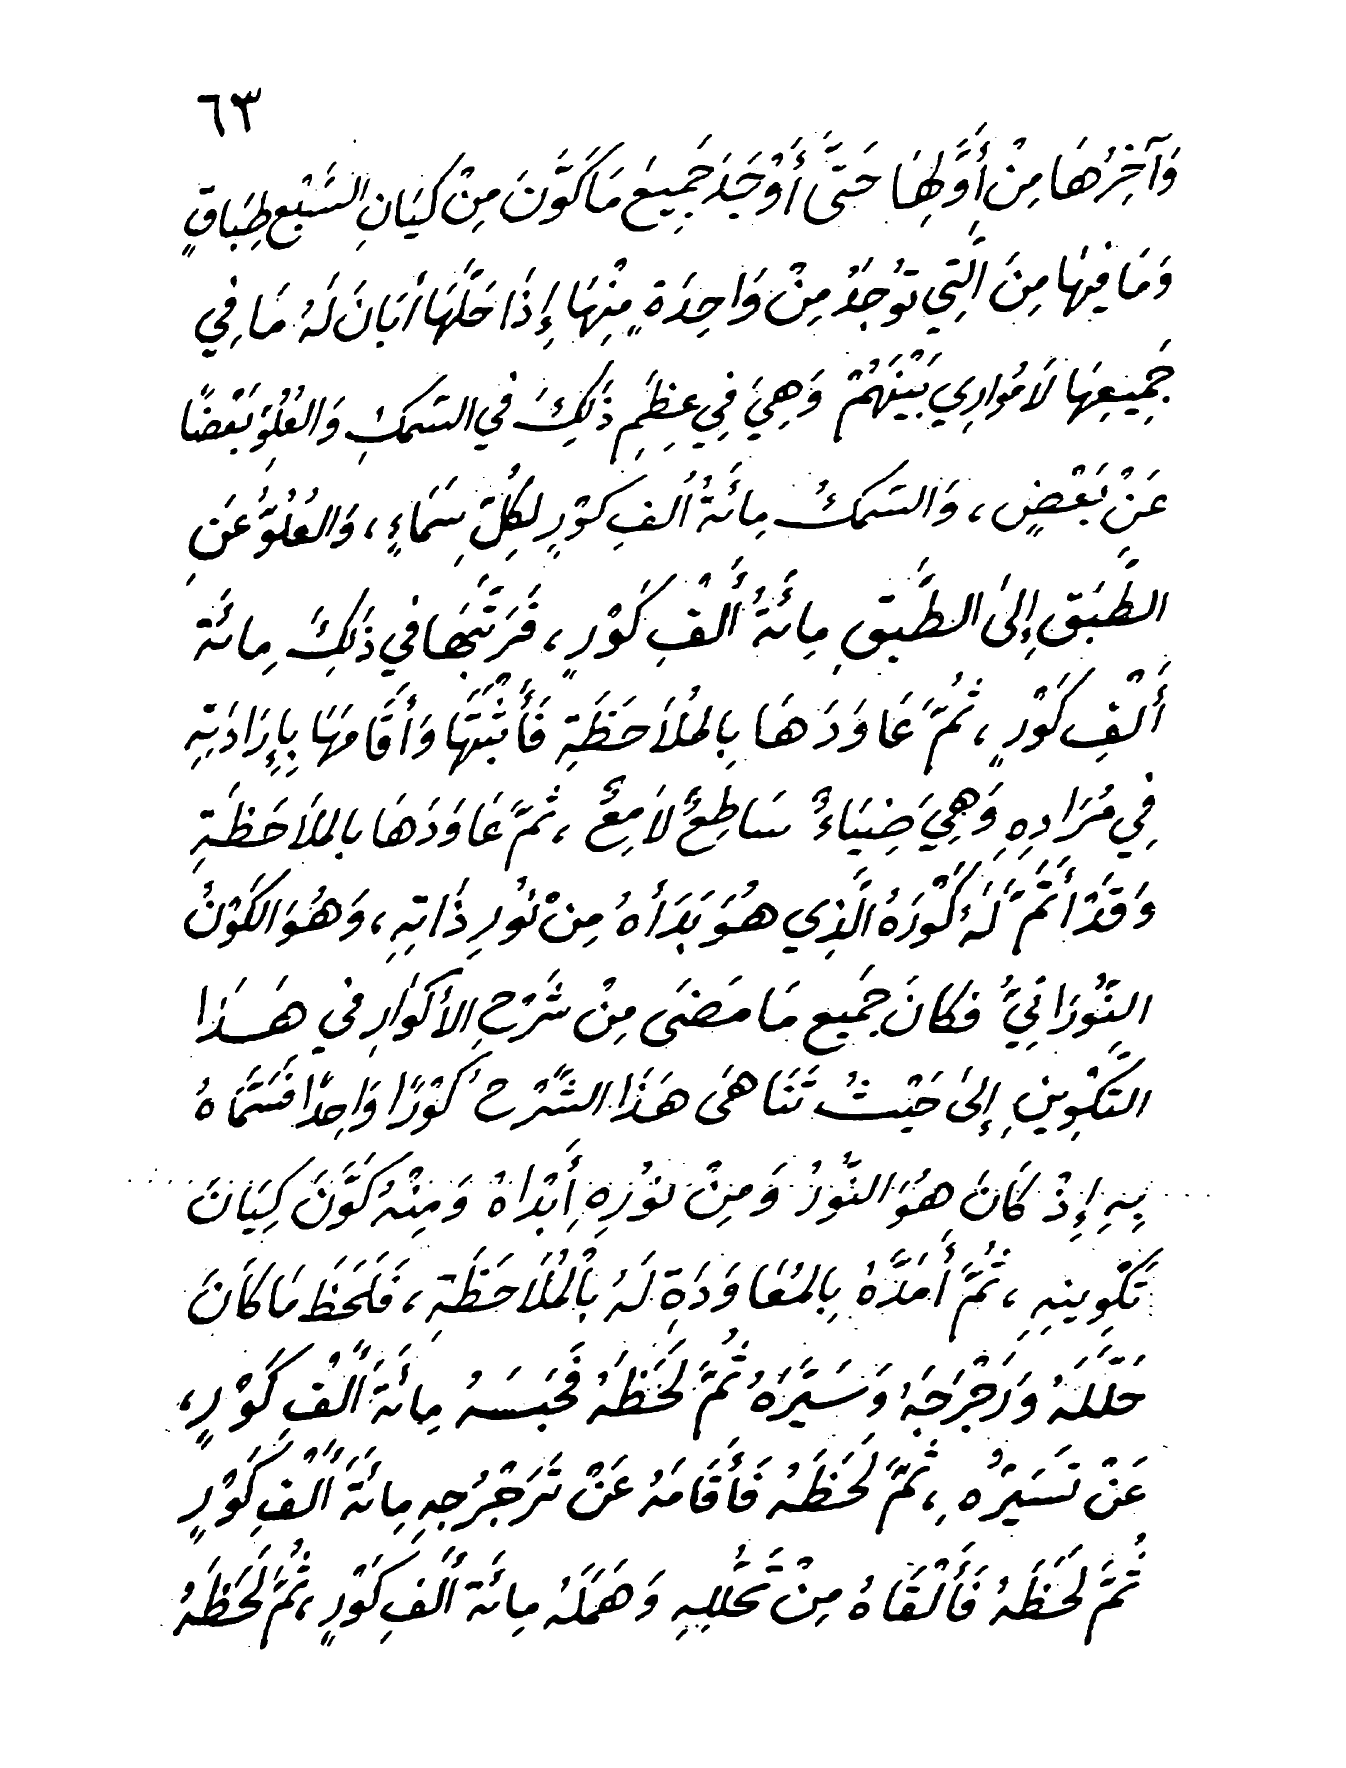 ٦٣
وَآخِرُهَا مِنْ أَوَّلِهَا حَتَّى أَوْجَدَ جَمِيعَ مَا كَوَّنَ مِنْ كِيَانِ السَّبْعِ طِبَاقٍ
وَمَا فِيهَا مِنَ الَّتِي تُوجَدُ مِنْ وَاحِدَةٍ مِنْهَا إِذَا حَلَّهَا أَبَانَ لَهُ مَا فِي
جَمِيعِهَا لَا مُوَارِي بَيْنَهُمْ وَهِيَ فِي عِظَمِ ذَلِكَ فِي السَّمكِ وَالعُلُوِّ بَعْضًا
عَنْ بَعْضٍ، وَالسَّمكُ مِائَةُ أَلفِ كَوْرٍ لِكُلِّ سَمَاءٍ، وَالعُلُوُّ عَنِ
الطَّبَقِ إِلَى الطَّبَقِ مِائَةُ أَلْفِ كَوْرٍ، فَرَتَّبَهَا فِي ذَلِكَ مِائَةَ
أَلْفِ كَوْرٍ، ثُمَّ عَاوَدَهَا بِالمُلَاحَظَةِ فَأَثْبَتَهَا وَأَقَامَهَا بِإِرَادَتِهِ
فِي مُرَادِهِ وَهِيَ ضِيَاءٌ سَاطِعٌ لَامِعٌ، ثُمَّ عَاوَدَهَا بِالمُلاَحَظَةِ
وَقَدْ أَتَمَّ لَهُ كَوْرَهُ الَّذِي هُوَ بَدَأَهُ مِنْ نُورِ ذَاتِهِ، وَهُوَ الكَوْنُ
النُّورَانِيُّ فَكَانَ جَمِيعُ مَا مَضَى مِنْ شَرْحِ الأَكْوَارِ فِي هَذَا
التَّكْوِينِ إِلَى حَيْثُ تَنَاهَى هَذَا الشَّرْحُ كَوْرًا وَاحِدًا فَسَمَّاهُ
بِهِ إِذْ كَانَ هُوَ النُّورُ وَمِنْ نُورِهِ أَبْدَاهُ وَمِنْهُ كَوَّنَ كِيَانَ
تَكْوِينِهِ، ثُمَّ أَمَدَّهُ بِالمُعَاوَدَةِ لَهُ بِالْمُلَاحَظَةِ، فَلَحَظَ مَا كَانَ
حَلَّلَهُ وَرَجْرَجَهُ وَسَيَّرَهُ ثُمَّ لَحَظَهُ فَحَبَسَهُ مِائَةَ أَلْفِ كَوْرٍ،
عَنْ تَسَيُّرِهِ، ثُمَّ لَحَظَهُ فَأَقَامَهُ عَنْ تَرَجْرُجِهِ مِائَةَ أَلْفِ كَوْرٍ
ثُمَّ لَحَظَهُ فَأَلْقَاهُ مِنْ تَحَلُّلِهِ وَهَمَلَهُ مِائَةَ أَلفِ كَوْرٍ، ثُمَّ لَحَظَهُ